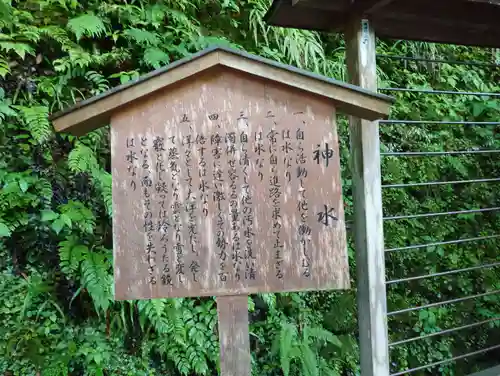 神水
一、自ら活動して他を動かしむる
は水なり
二、常に自ら進路を求めて止まざる
は水なり
三、自ら清くして他の汚水を洗い清
濁併せ容るるの量あるは水なり
四、障害に逢い激しくその勢力を百
倍するは水なり
五、洋々として大海を充たし、発し
て蒸気となり雲となり雪と変じ
霰と化し凝っては玲ろうたる鏡
となる、而もその性を失わざる
は水なり